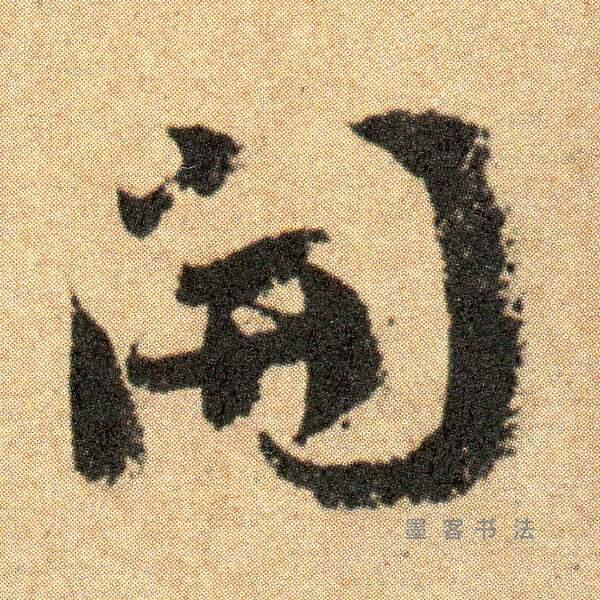 開
墨客书法